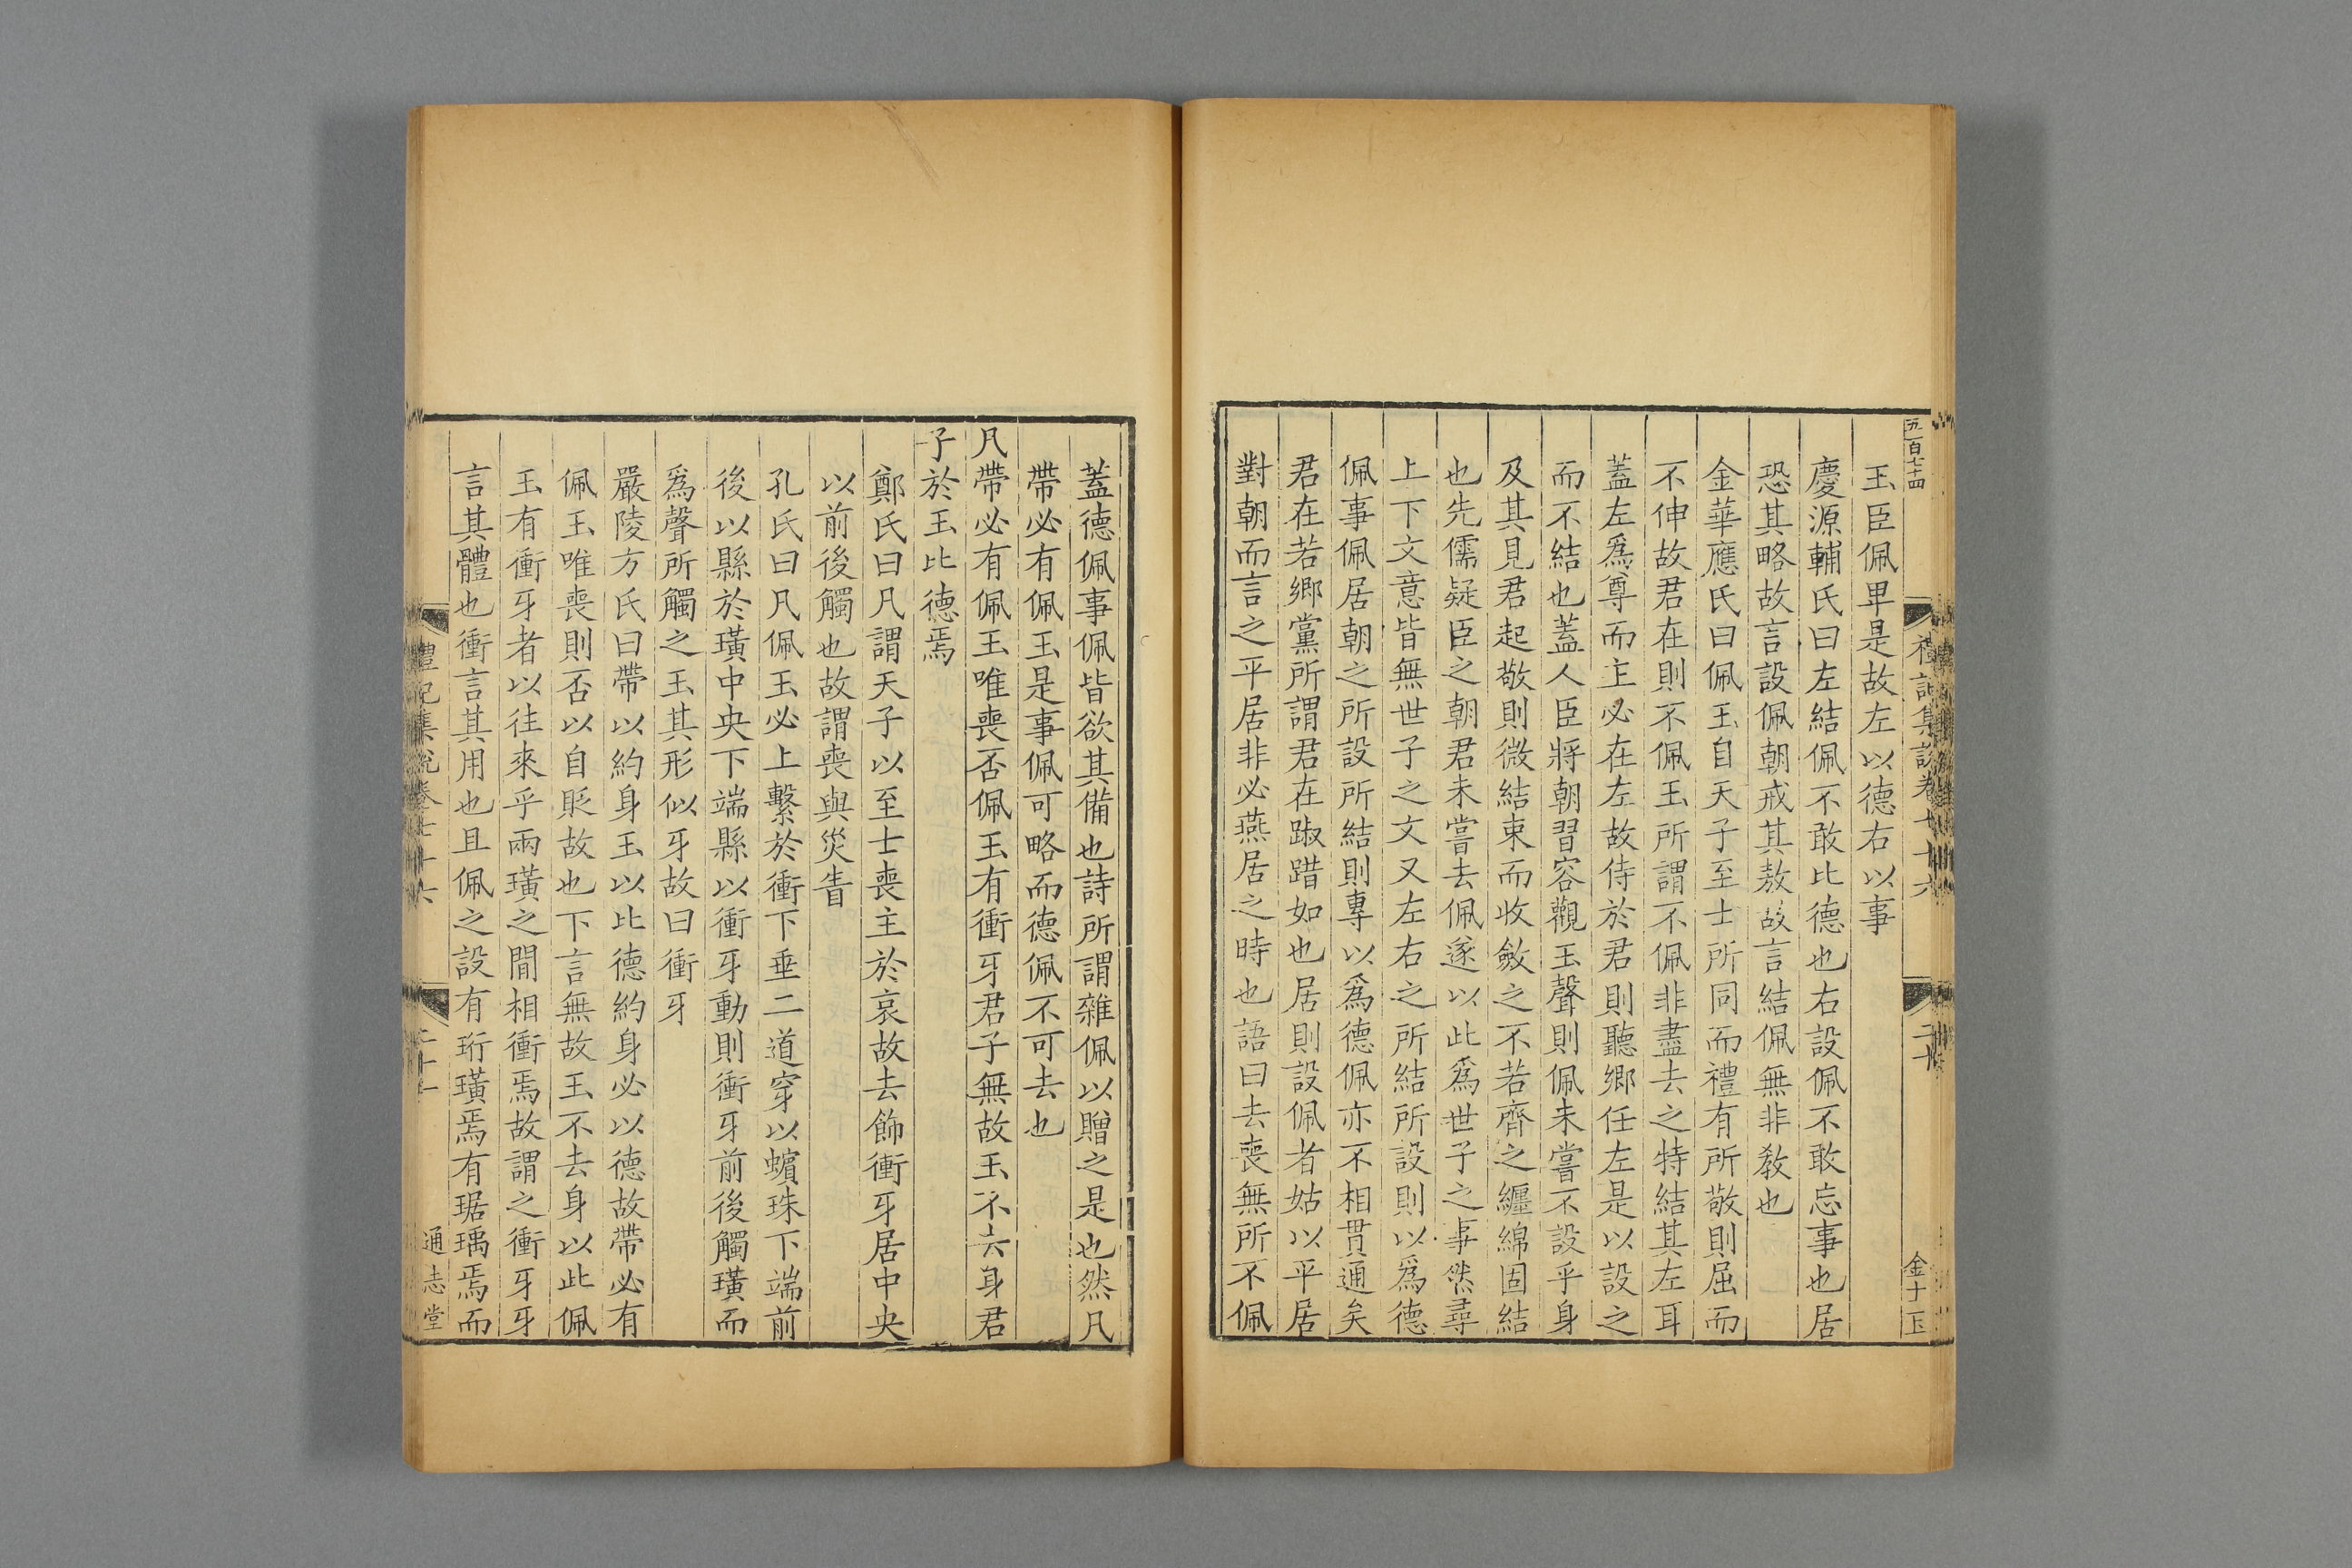 五百七十四
玉臣佩畢是故左以德右以事
慶源輔氏曰左結佩不敢比德也右設佩不敢忘事也居
恐其略故言設佩朝戒其敖故言結佩無非敎也
金華應氏曰佩玉自天子至士所同而禮有所敬則屈而
不伸故君在則不佩玉所謂不佩非盡去之特結其左耳
蓋左爲尊而主必在左故侍於君則聽鄉任左是以設之
而不結也蓋人臣將朝習容觀玉聲則佩未嘗不設乎身
及其見君起敬則微結束而收斂之不若齊之纏綿固結
也先儒疑臣之朝君未嘗去佩遂以此爲世子之事然尋
上下文意皆無世子之文又左右之所結所設則以爲德
佩事佩居朝之所設所結則專以爲德佩亦不相貫通矣
君在若鄉黨所謂君在踧踖如也居則設佩者姑以平居
對朝而言之平居非必燕居之時也語曰去喪無所不佩
蓋德佩事佩皆欲其備也詩所謂雜佩以贈之是也然凡
帶必有佩玉是事佩可略而德佩不可去也
凡帶必有佩玉唯喪否佩玉有衝牙君子無故玉不去身君
子於玉比德焉
鄭氏曰凡謂天子以至士喪主於哀故去飾衝牙居中央
以前後觸也故謂喪與災眚
孔氏曰凡佩玉必上繫於衝下垂二道穿以蠙珠下端前
後以縣於璜中央下端縣以衝牙動則衝牙前後觸璜而
爲聲所觸之玉其形似牙故曰衝牙
嚴陵方氏曰帶以約身玉以比德約身必以德故帶必有
佩玉唯喪則否以自貶故也下言無故玉不去身以此佩
玉有衝牙者以往來乎兩璜之間相衝焉故謂之衝牙牙
言其體也衝言其用也且佩之設有珩璜焉有琚瑀焉而
禮記集說卷七十六
二十一
通志堂